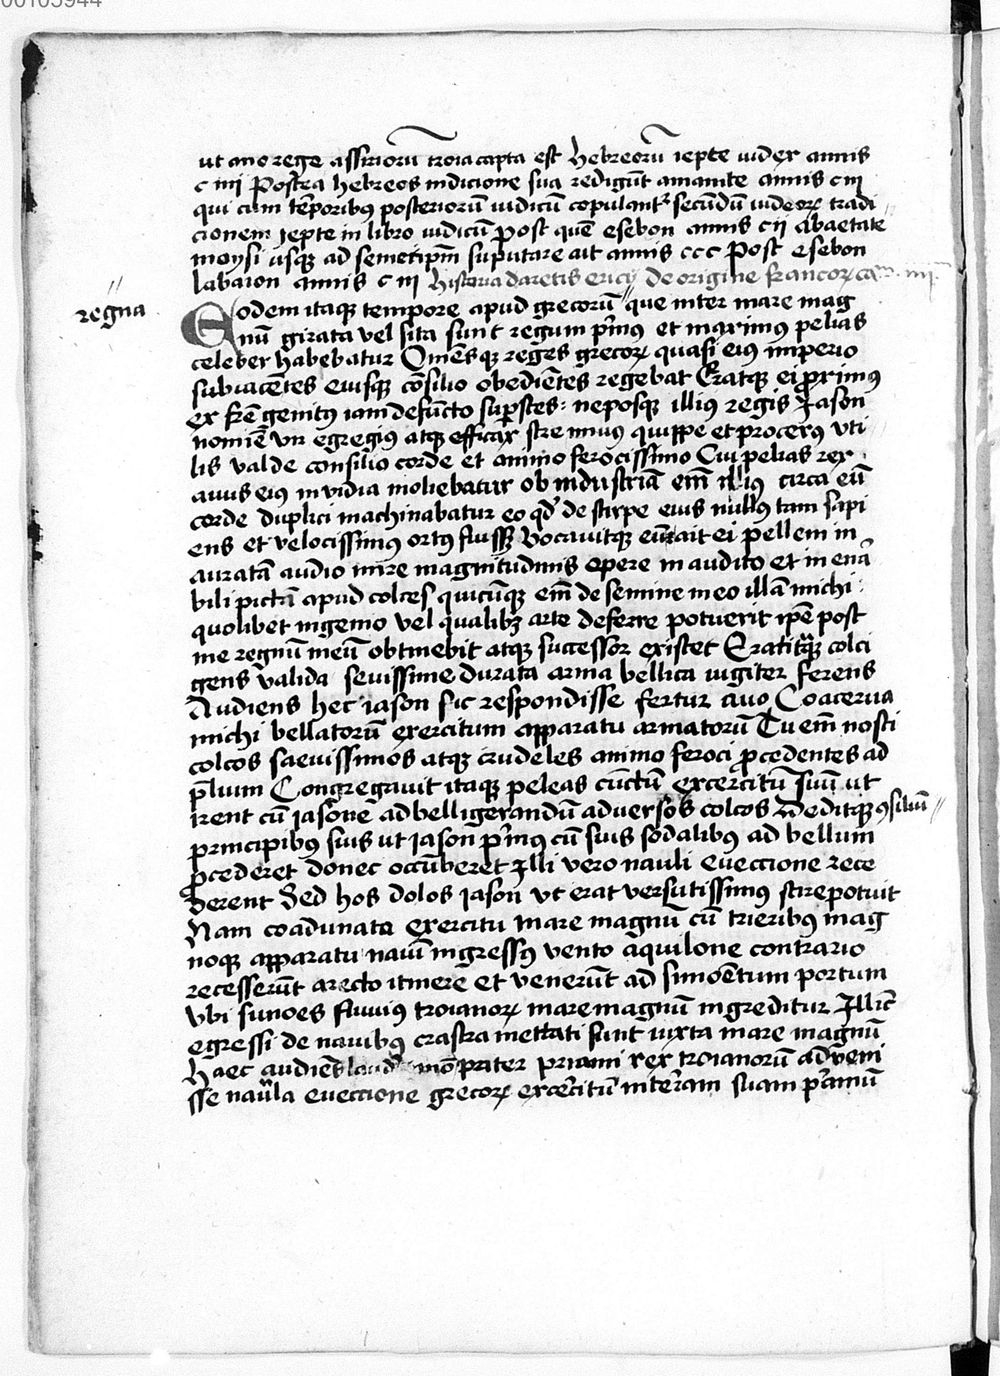 00105944
ut ano rege assiriorū troia capta est hebreorū iepte iudex annis
c iiii Postea hebreos indicione sua redigūt amanite annis c iii
qui cum tēporibꝰ posteriorū iudicū copulantʳ secūdū iudeoꝝ tradi
cionem iepte in libro iudicū Post quē esebon annis c ii Abaetate
moysi usqꝫ ad semetipm̄ suputare ait annis ccc Post esebon
labaion annis c iii historia daretis de origine francoꝝ
regna
Eodem itaqꝫ tempore apud grecorū que inter mare mag
nū girata vel sita sunt regum pͥmus et maximus pelias
celeber habebatur Omēsqꝫ reges grecoꝝ quasi eius imperio
subiacentes eiusqꝫ cōsilio obediētes regebat Eratqꝫ ei ꝓximus
ex frē genitꝰ iam defūcto suꝑstes: neposqꝫ illius regis Jason
nomīe vir egregiꝰ atqꝫ efficax strenuus quippe et procerꝰ vti
lis valde consilio corde et animo ferocissimo Cui pelias rex
auus eiꝰ inuidia moliebatur ob industriā em̄ illiꝰ circa eū
corde duplici machinabatur eo qđ de stirpe eius nullꝰ tam sapi
ens et velocissimꝰ ortꝰ fuissꝫ Vocauitqꝫ eū ait ei pellem in
auratā audio mire magnitudinis opere in audito et in enā
bili pictā apud colces quicūqꝫ em̄ de semine meo illā michi
quolibet ingenio vel qualibꝫ arte deferre potuerit ipē post
me regnū meū obtinebit atqꝫ successor existet Eratitqꝫ colci
gens valida seuissime durata arma bellica iugiter ferens
Audiens hec iason sic respondisse fertur auo Coacerua
michi bellatorū exercitum apparatu armatorū Tu em̄ nosti
colcos saeuissimos atqꝫ crudeles animo feroci ꝓcedentes ad
p̄lium Congregauit itaqꝫ peleas cūctū excercitū suū ut
irent cū jasone ad belligerandū aduersos colcos Deditqꝫ ꝯsiliū
principibꝰ suis ut jason pͥmꝰ cū suis sodalibꝰ ad bellum
ꝓcederet donec occūberet Illi vero nauli eueccione rece
derent Sed hos dolos jason vt erat versutissimꝰ scire potuit
Nam coadunata exercitu mare magnū cū trieribꝰ mag
noqꝫ apparatu nauī ingressꝰ vento aquilone contrario
recesserūt a recto itinere et venerūt ad simoētum portum
vbi simoes fluuiꝰ troianoꝝ mare magnū ingreditur Illic
egressi de nauibꝰ crastra mettati sunt iuxta mare magnū
Haec audiēs pater priami rex troianorū adveni
sse nauͣla eueccione grecoꝝ excercitū interam suam pͥamū